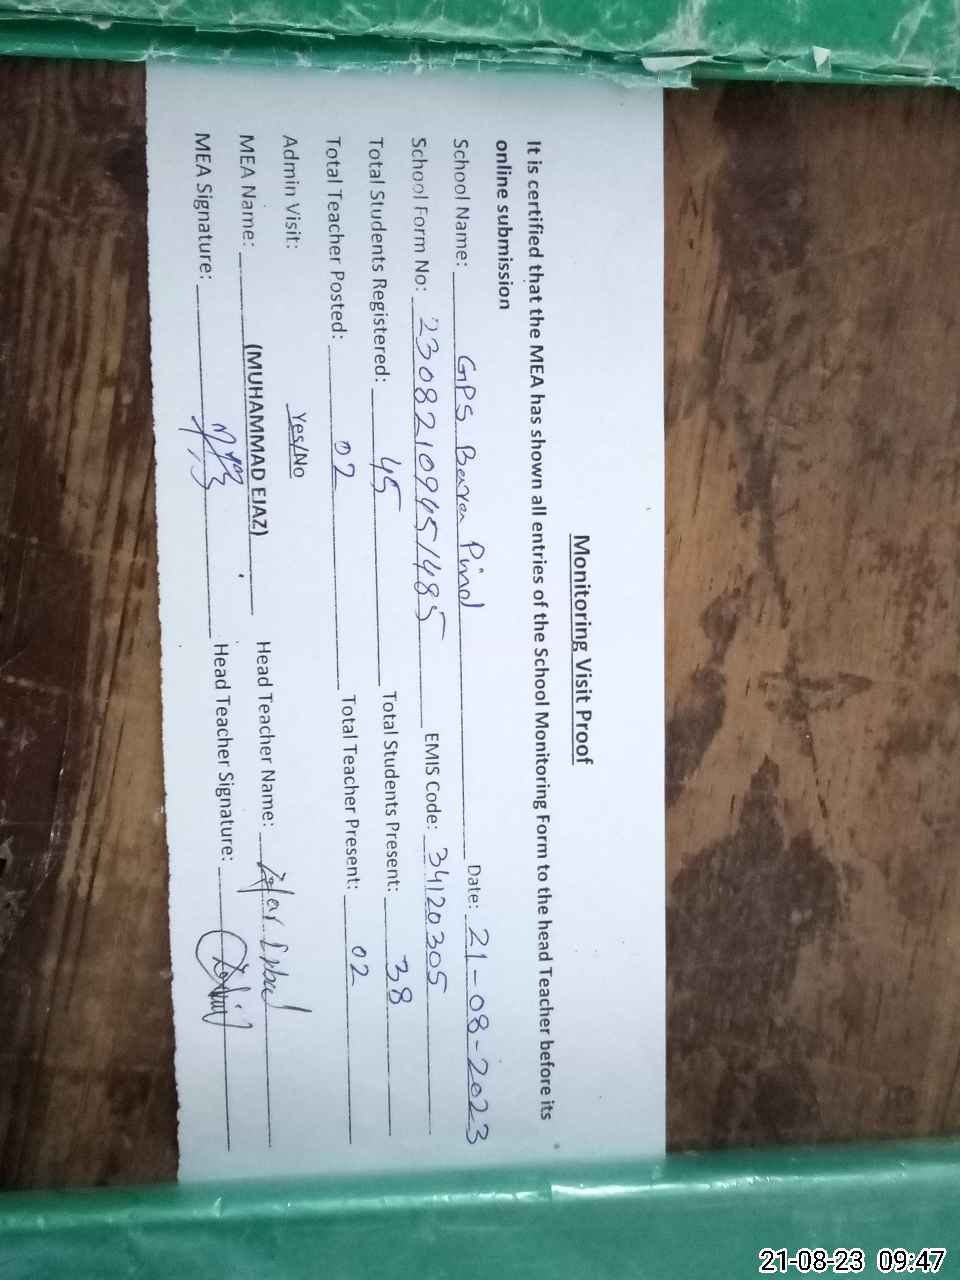 Monitoring Visit Proof
It is certified that the MEA has shown all entries of the School Monitoring Form to the head Teacher before its
online submission
School Name: GPS Bara Pind Date: 21-08-2023
School Form No: 23082109451485 EMIS Code: 34120305
Total Students Registered: 45 Total Students Present: 38
Total Teacher Posted: 02 Total Teacher Present: 02
Admin Visit: Yes/No
MEA Name: (MUHAMMAD EJAZ) Head Teacher Name: Zafar Iqbal
MEA Signature: Head Teacher Signature:
21-08-23 09:47